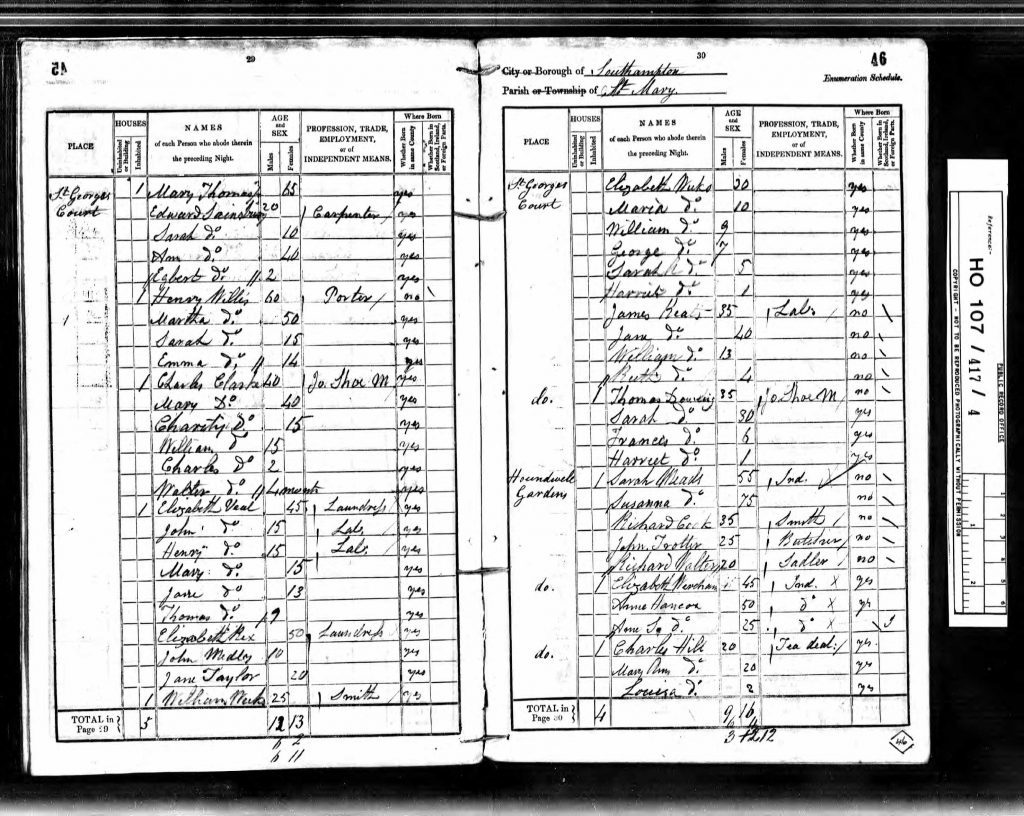 45
29
HOUSES
NAMES
of each Person who abode therein
the preceding Night.
AGE
and
SEX
PROFESSION, TRADE,
EMPLOYMENT,
or of
INDEPENDENT MEANS.
Where Born
PLACE
Uninhabited or Building
Inhabited
Males
Females
Whether Born in same County
Whether Born in Scotland, Ireland, or Foreign Parts.
St Georges 1 Mary Thomas 65 yes
Court Edward Sainsbury 20 Carpenter yes
Sarah do 10 yes
Ann do 40 yes
Egbert do 2 yes
1 Henry Willis 60 Porter no
Martha do 50 yes
Sarah do 15 yes
Emma do 14 yes
1 Charles Clarke 40 Jo. Shoe M yes
Mary Do 40 yes
Charity Do 15 yes
William do 15 yes
Charles do 2 yes
Walter do 4 months yes
1 Elizabeth Veal 45 Laundress yes
John do 15 Lab yes
Henry do 15 Lab yes
Mary do 15 yes
Jane do 13 yes
Thomas do 9 yes
Elizabeth Rex 50 Laundress yes
John Medley 10 yes
Jane Taylor 20 yes
1 William Weeks 25 Smith yes
TOTAL in
Page 29 5 12 13
6 2
6 11
30
46
City or Borough of Southampton
Enumeration Schedule.
Parish or Township of St Mary
HOUSES
NAMES
of each Person who abode therein
the preceding Night.
AGE
and
SEX
PROFESSION, TRADE,
EMPLOYMENT,
or of
INDEPENDENT MEANS.
Where Born
PLACE
Uninhabited or Building
Inhabited
Males
Females
Whether Born in same County
Whether Born in Scotland, Ireland, or Foreign Parts.
St Georges Elizabeth Weeks 30 yes
Court Maria do 10 yes
William do 9 yes
George do 7 yes
Sarah do 5 yes
Harriet do 1 yes
James 35 Lab no
Jane do 40 no
William do 13 no
Ruth do 4 no
do. 1 Thomas 35 Jo. Shoe M no
Sarah do 30 yes
Frances do 6 yes
Harriet do 1 yes
Houndwell 1 Sarah Meads 55 Ind. no
Gardens Susanna do 75 no
Richard Cook 35 Smith no
John Trotter 25 Butcher no
Richard Walters 20 Sadler no
do. 1 Elizabeth 45 Ind. yes
Anne 50 do yes
Anne do 25 do
do. 1 Charles Hill 20 Tea deal: yes
Mary Ann do 20 yes
Louisa do 2 yes
TOTAL in
Page 30 4 9 16
3 12
46
Reference:-
HO 107/417/4
PUBLIC RECORD OFFICE
COPYRIGHT - NOT TO BE REPRODUCED PHOTOGRAPHICALLY WITHOUT PERMISSION